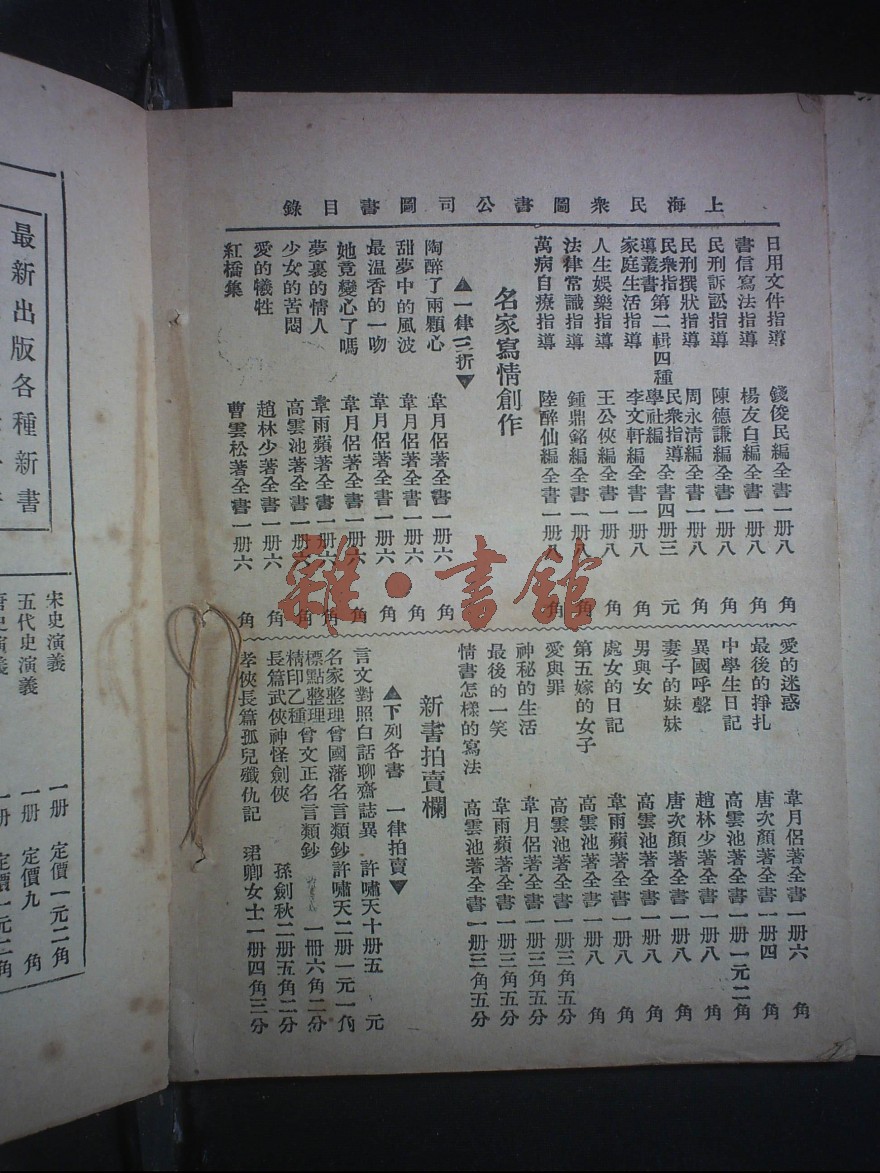 上海民衆圖書公司圖書目錄
日用文件指導 錢俊民編全書一册八角
書信寫法指導 楊友白編全書一册八角
民刑訴訟指導 陳德謙編全書一册八角
民刑撰狀指導 周永清編全書一册八角
民衆指導叢書第二輯四種 民衆指導學社編全書四册三元
家庭生活指導 李文軒編全書一册八角
人生娛樂指導 王公俠編全書一册八角
法律常識指導 鍾鼎銘編全書一册八角
萬病自療指導 陸醉仙編全書一册八角
名家寫情創作
▲一律三折▼
陶醉了兩顆心 韋月侶著全書一册六角
甜夢中的風波 韋月侶著全書一册六角
最溫香的一吻 韋月侶著全書一册六角
她竟變心了嗎 韋月侶著全書一册六角
夢裏的情人 韋雨蘋著全書一册六角
少女的苦悶 高雲池著全書一册六角
愛的犧牲 趙林少著全書一册六角
紅橋集 曹雲松著全書一册六角
愛的迷惑 韋月侶著全書一册六角
最後的掙扎 唐次顏著全書一册四角
中學生日記 高雲池著全書一册一元二角
異國呼聲 趙林少著全書一册八角
妻子的妹妹 唐次顏著全書一册八角
男與女 高雲池著全書一册八角
處女的日記 韋雨蘋著全書一册八角
第五嫁的女子 高雲池著全書一册八角
愛與罪 高雲池著全書一册三角五分
神秘的生活 韋月侶著全書一册三角五分
最後的一笑 韋雨蘋著全書一册三角五分
情書怎樣的寫法 高雲池著全書一册三角五分
新書拍賣欄
▲下列各書 一律拍賣▼
言文對照白話聊齋誌異 許嘯天十册五元
名家整理曾國藩名言類鈔許嘯天二册一元一角
標點整理精印乙種曾文正名言類鈔 一冊六角二分
長篇武俠神怪劍俠 孫劍秋二册五角二分
孝俠長篇孤兒殲仇記 珺卿女士一册四角三分
雜·書館
最新出版各種新書
宋史演義 一册 定價一元二角
五代史演義 一册 定價九角
唐史演義 一册 定價一元二角